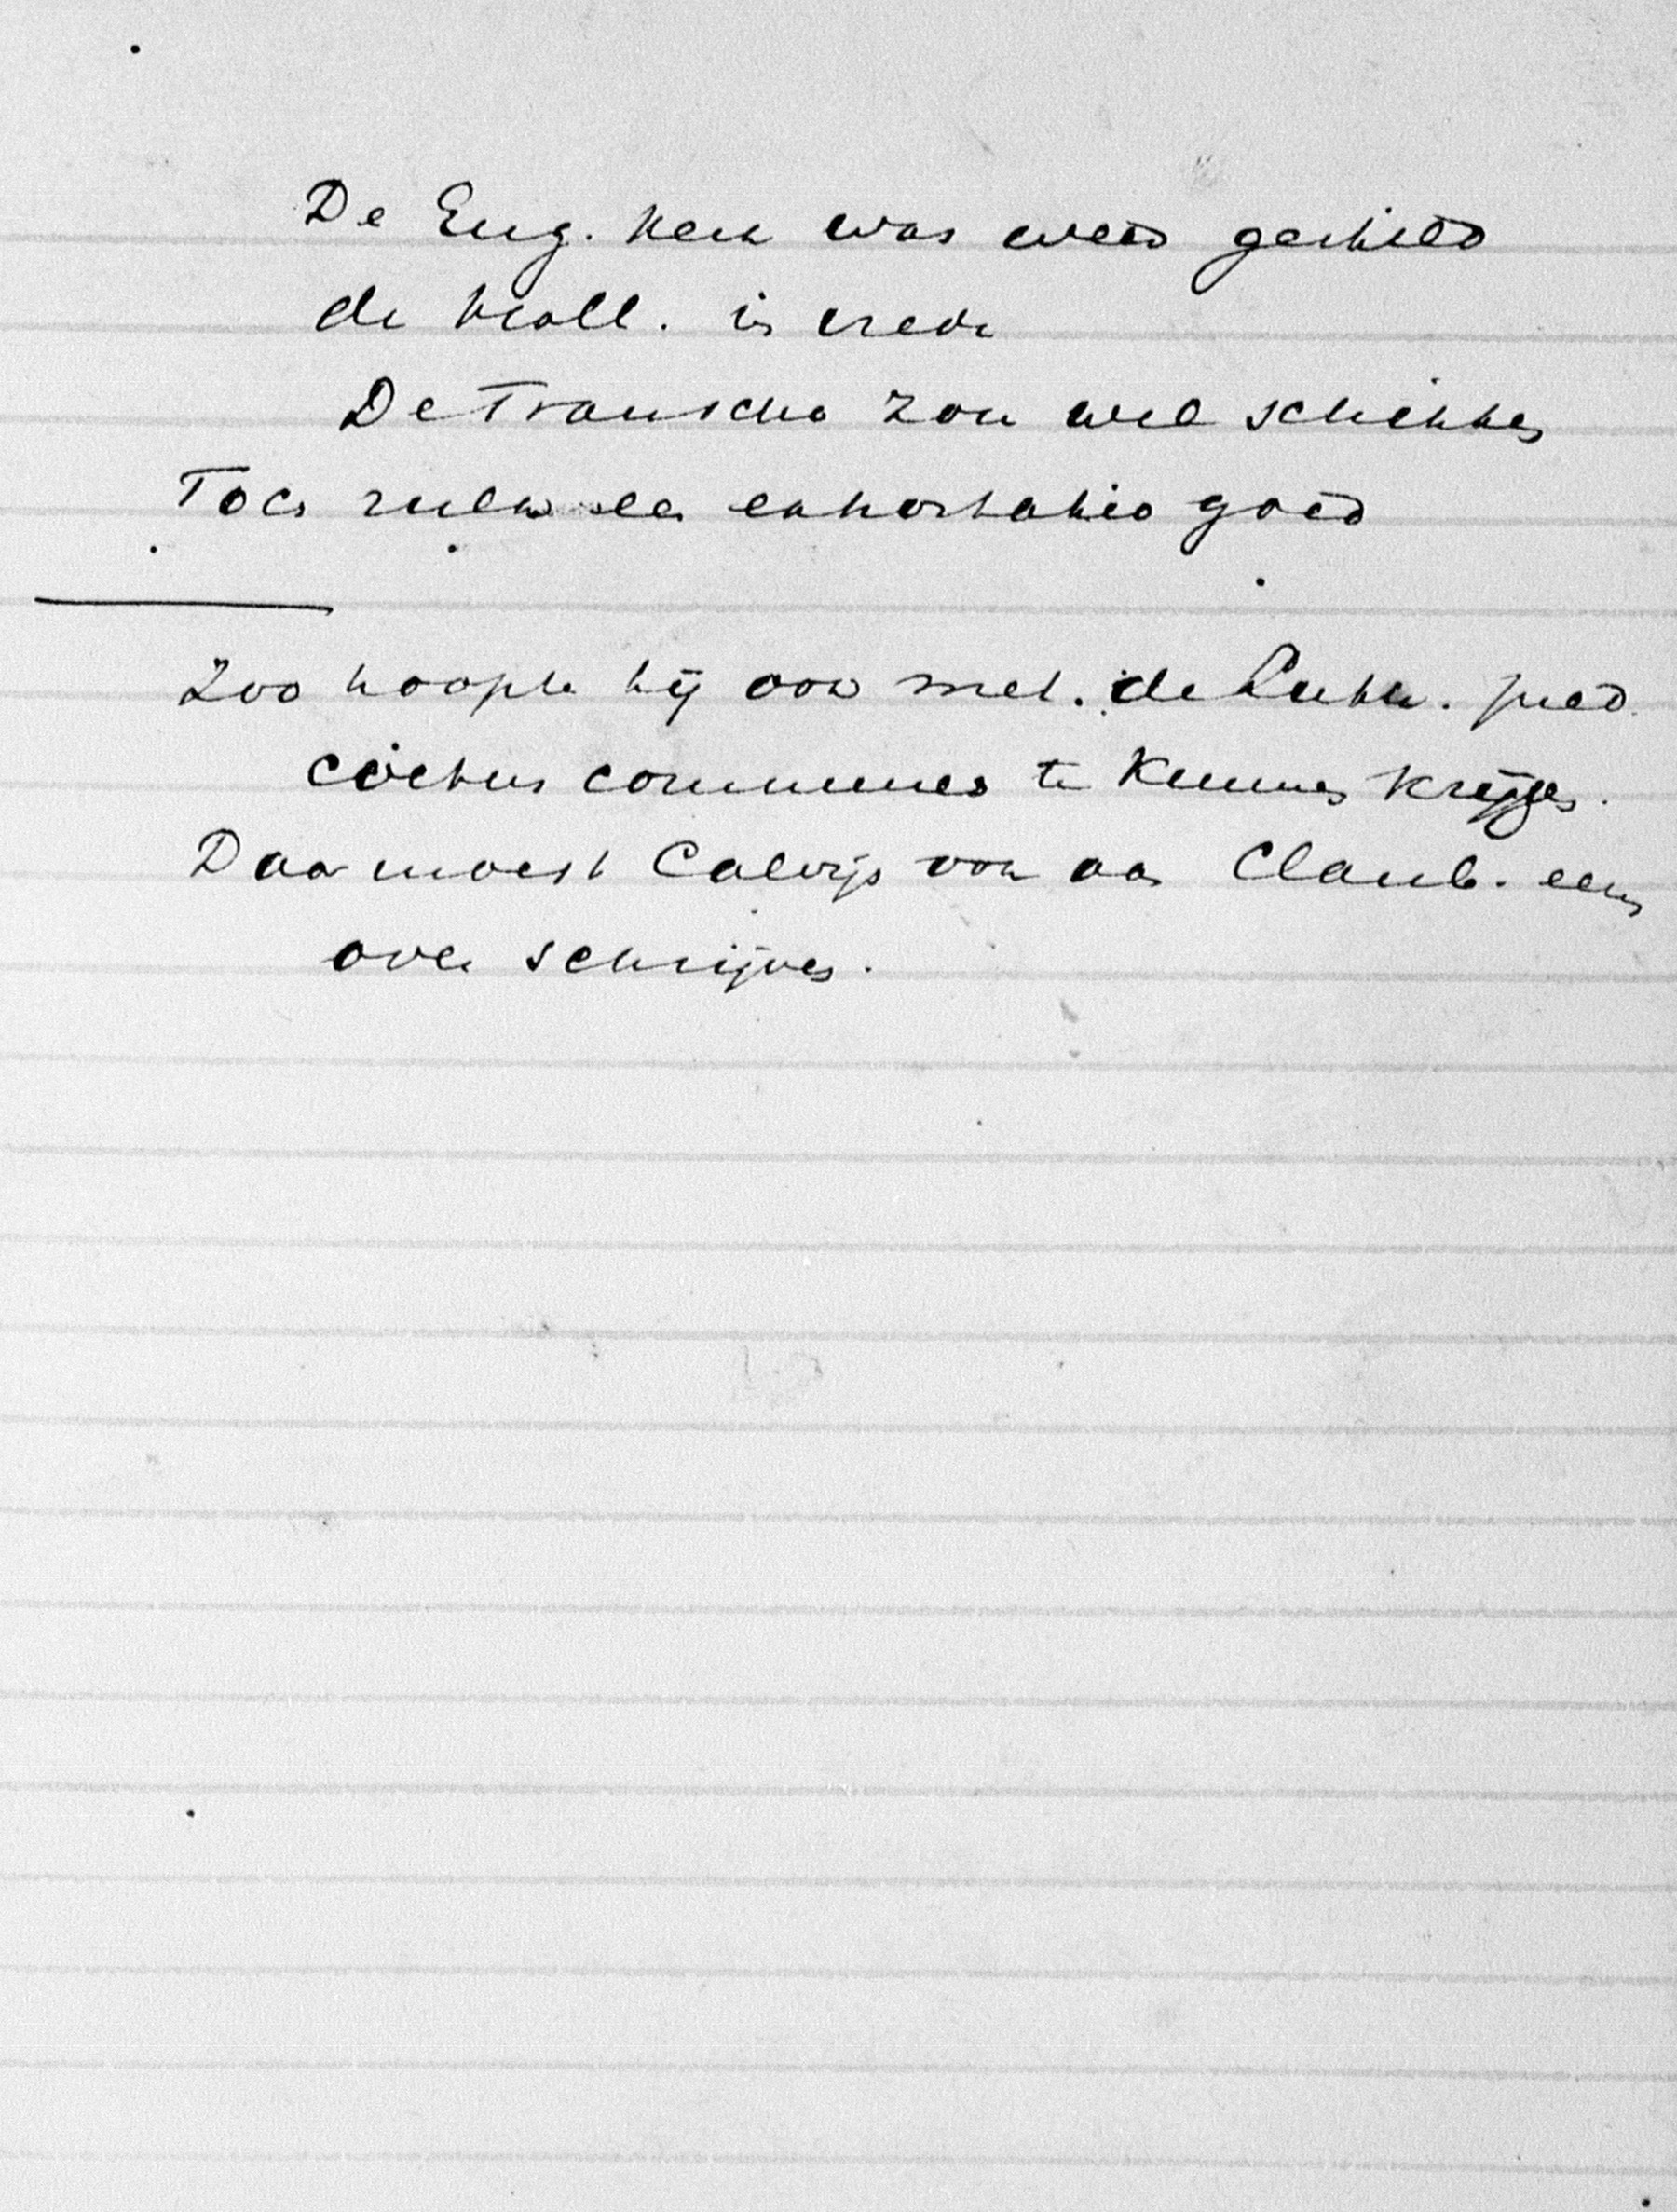 De Eng. kerk was weer gescheld
de holl. is vrede
De Fransche zou wel schikken
Toch zulk een exhortatio goed
Zoo hoopte hij ook met de Luth. pred.
coetus communes te kunnen krijgen.
Daar moest Calvijn ook aan Claub. eens
over schrijven.